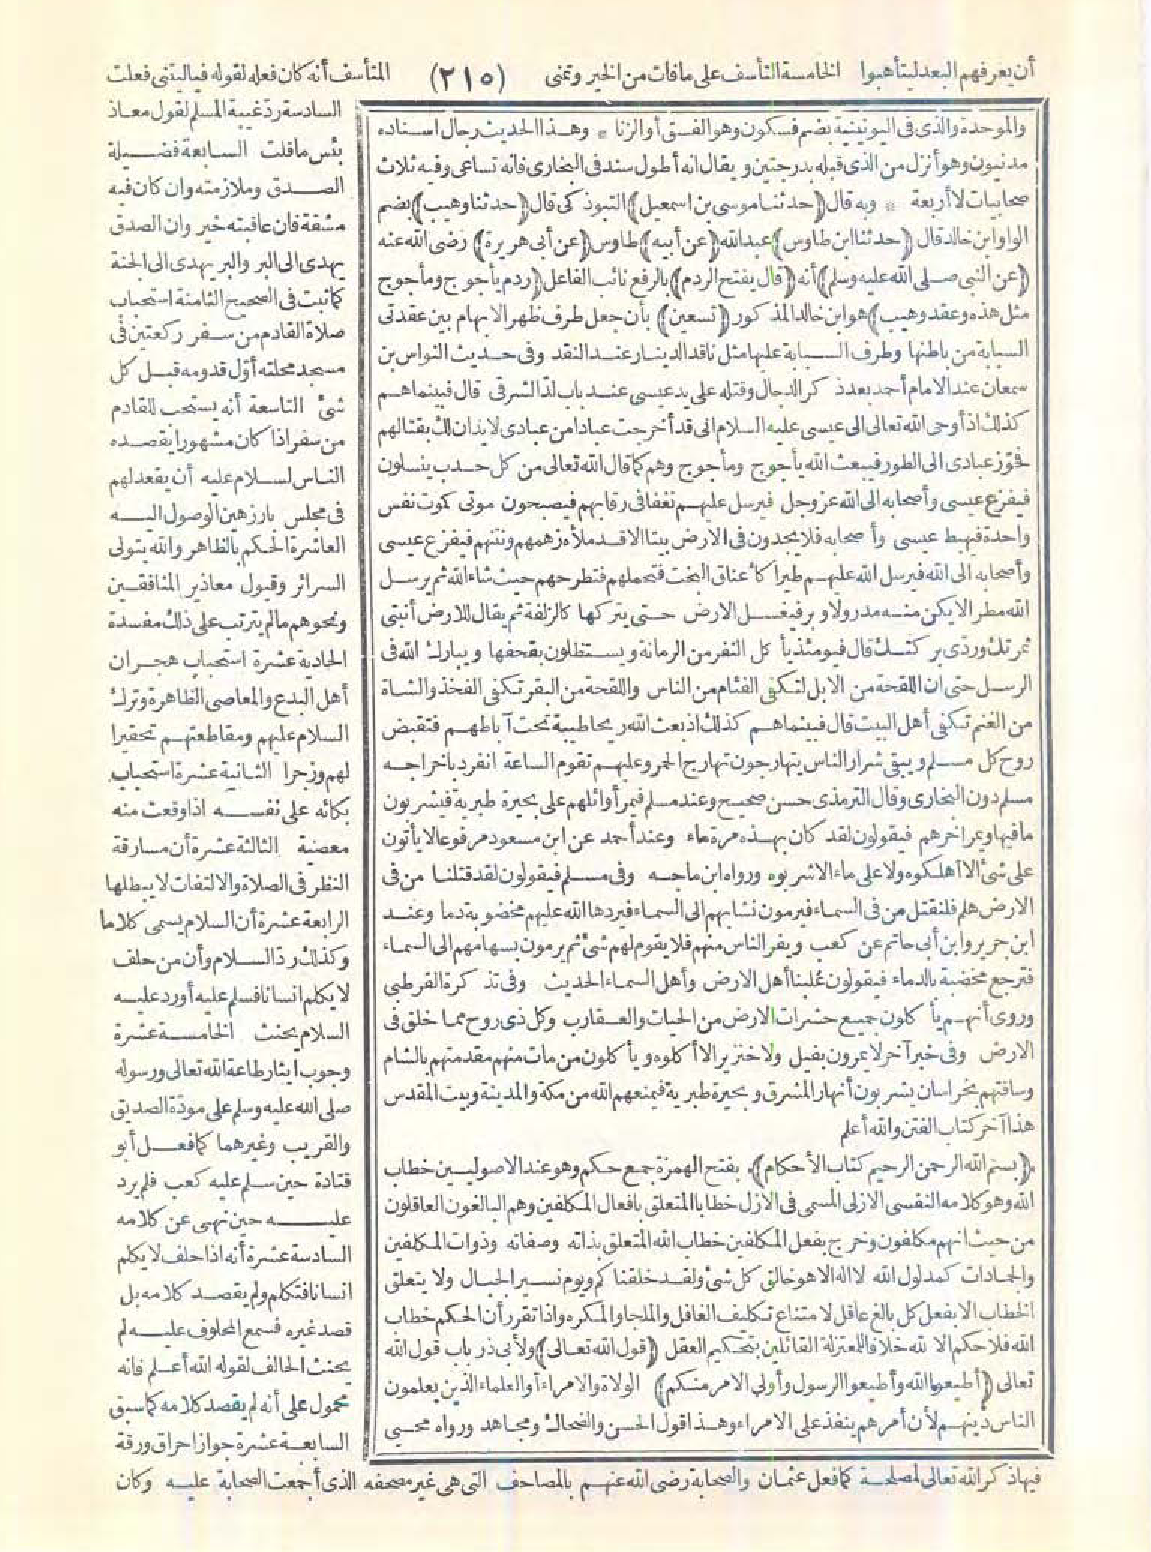 أن يعرفهم البعد ليتأهبوا الخامسة التأسف على مافات من الخير وتمنى (٢١٥) المتأسف أنه كان فعله لقوله فياليتنى فعلت
والموحدة والذى فى اليونينية بضم فسكون وهو الفسق أو الزنا * وهذا الحديث رجال اسناده
مدنيون وهو أنزل من الذى قبله بدرجتين ويقال انه أطول سند فى البخارى فانه تساعى وفيه ثلاث
صحابيات لا أربعة * وبه قال (حدثنا موسى بن اسمعيل) التبوذكى قال (حدثنا وهيب) بضم
الواو ابن خالد قال (حدثنا ابن طاوس) عبدالله (عن أبيه) طاوس (عن أبى هريرة) رضى الله عنه
(عن النبى صلى الله عليه وسلم) أنه (قال يفتح الردم) بالرفع نائب الفاعل (ردم يأجوج ومأجوج
مثل هذه وعقد وهيب) هو ابن خالد المذكور (تسعين) بأن جعل طرف ظهر الابهام بين عقدتى
السبابة من باطنها وطرف السبابة عليها مثل ناقد الدينار عند النقد وفى حديث النواس بن
سمعان عند الامام أحمد بعد ذكر الدجال وقتله على يد عيسى عند باب لد الشرقى قال فبينما هم
كذلك اذ أوحى الله تعالى الى عيسى عليه السلام انى قد أخرجت عبادا من عبادى لا يدان لك بقتالهم
فحوّز عبادى الى الطور فيبعث الله يأجوج ومأجوج وهم كما قال الله تعالى من كل حدب ينسلون
فيفزع عيسى وأصحابه الى الله عز وجل فيرسل عليهم نغفا فى رقابهم فيصبحون موتى كموت نفس
واحدة فيهبط عيسى وأصحابه فلا يجدون فى الارض بيتا الا قد ملأه زهمهم ونتنهم فيفزع عيسى
وأصحابه الى الله فيرسل الله عليهم طيرا كأعناق البخت فتحملهم فتطرحهم حيث شاء الله ثم يرسل
الله مطرا لا يكن منه مدر ولا وبر فيغسل الارض حتى يتركها كالزلفة ثم يقال للارض أنبتى
ثمرتك وردّى بركتك قال فيومئذ يأكل النفر من الرمانة ويستظلون بقحفها ويبارك الله فى
الرسل حتى ان اللقحة من الابل لتكفى الفئام من الناس واللقحة من البقر تكفى الفخذ والشاة
من الغنم تكفى أهل البيت قال فبينما هم كذلك اذ بعث الله ريحا طيبة تحت آباطهم فتقبض
روح كل مسلم ويبقى شرار الناس يتهارجون تهارج الحمر وعليهم تقوم الساعة انفرد باخراجه
مسلم دون البخارى وقال الترمذى حسن صحيح وعند مسلم فيمر أوائلهم على بحيرة طبرية فيشربون
ما فيها ويمر اخرهم فيقولون لقد كان بهذه مرة ماء وعند أحمد عن ابن مسعود مرفوعا لا يأتون
على شئ الا أهلكوه ولا على ماء الا شربوه ورواه ابن ماجه وفى مسلم فيقولون لقد قتلنا من فى
الارض هلم فلنقتل من فى السماء فيرمون نشابهم الى السماء فيردها الله عليهم مخضوبة دما وعند
ابن جرير وابن أبى حاتم عن كعب ويفر الناس منهم فلا يقوم لهم شئ ثم يرمون بسهامهم الى السماء
فترجع مخضبة بالدماء فيقولون غلبنا أهل الارض وأهل السماء الحديث وفى تذكرة القرطبى
وروى أنهم يأكلون جميع حشرات الارض من الحيات والعقارب وكل ذى روح مما خلق فى
الارض وفى خبر آخر لا يمرون بفيل ولا خنزير الا أكلوه ويأكلون من مات منهم مقدمتهم بالشام
وساقتهم بخراسان يشربون أنهار المشرق وبحيرة طبرية فيمنعهم الله من مكة والمدينة وبيت المقدس
هذا آخر كتاب الفتن والله أعلم
(بسم الله الرحمن الرحيم كتاب الأحكام) بفتح الهمزة جمع حكم وهو عند الاصوليين خطاب
الله وهو كلامه النفسى الازلى المسمى فى الازل خطابا المتعلق بافعال المكلفين وهم البالغون العاقلون
من حيث انهم مكلفون وخرج بفعل المكلفين خطاب الله المتعلق بذاته وصفاته وذوات المكلفين
والجمادات كمدلول الله لا اله الا هو خالق كل شئ ولقد خلقناكم ويوم نسير الجبال ولا يتعلق
الخطاب الا بفعل كل بالغ عاقل لامتناع تكليف الغافل والملجا والمكره واذا تقرر أن الحكم خطاب
الله فلا حكم الا لله خلافا للمعتزلة القائلين بتحكيم العقل (قول الله تعالى) ولأبى ذر باب قول الله
تعالى (أطيعوا الله وأطيعوا الرسول وأولى الامر منكم) الولاة والامراء أو العلماء الذين يعلمون
الناس دينهم لأن أمرهم ينفذ على الامراء وهذا قول الحسن والضحاك ومجاهد ورواه محيى
السادسة ردّ غيبة المسلم لقول معاذ
بئس ما قلت السابعة فضيلة
الصدق وملازمته وان كان فيه
مشقة فان عاقبته خير وان الصدق
يهدى الى البر والبر يهدى الى الجنة
كما ثبت فى الصحيح الثامنة استحباب
صلاة القادم من سفر ركعتين فى
مسجد محلته أوّل قدومه قبل كل
شئ التاسعة أنه يستحب للقادم
من سفر اذا كان مشهورا يقصده
الناس لسلام عليه أن يقعد لهم
فى مجلس بارز هين الوصول اليه
العاشرة الحكم بالظاهر والله يتولى
السرائر وقبول معاذير المنافقين
ونحوهم ما لم يترتب على ذلك مفسدة
الحادية عشرة استحباب هجران
أهل البدع والمعاصى الظاهرة وترك
السلام عليهم ومقاطعتهم تحقيرا
لهم وزجرا الثانية عشرة استحباب
بكائه على نفسه اذا وقعت منه
معصية الثالثة عشرة أن مسارقة
النظر فى الصلاة والالتفات لا يبطلها
الرابعة عشرة أن السلام يسمى كلاما
وكذلك ردّ السلام وأن من حلف
لا يكلم انسانا فسلم عليه أو رد عليه
السلام يحنث الخامسة عشرة
وجوب ايثار طاعة الله تعالى ورسوله
صلى الله عليه وسلم على مودّة الصديق
والقريب وغيرهما كما فعل أبو
قتادة حين سلم عليه كعب فلم يرد
عليه حين نهى عن كلامه
السادسة عشرة أنه اذا حلف لا يكلم
انسانا فتكلم ولم يقصد كلامه بل
قصد غيره فسمع المحلوف عليه لم
يحنث الحالف لقوله الله أعلم فانه
محمول على أنه لم يقصد كلامه كما سبق
السابعة عشرة جواز احراق ورقة
فيها ذكر الله تعالى لمصلحة كما فعل عثمان والصحابة رضى الله عنهم بالمصاحف التى هى غير مصحفه الذى أجمعت الصحابة عليه وكان